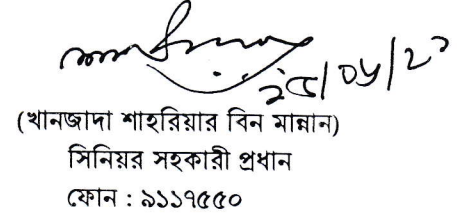 (খানজাদা শাহরিয়ার বিন মান্নান)
সিনিয়র সহকারী প্রধান
ফোন : ৯১১৭৫৫০